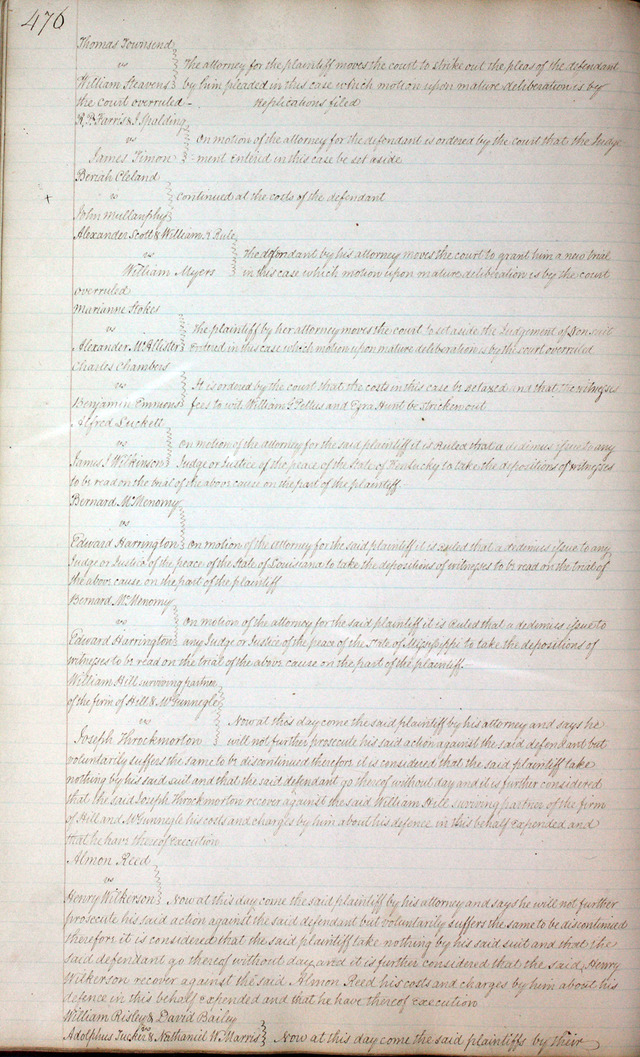 476
Thomas Townsend
vs
The attorney for the plaintiff moves the court to strike out the pleas of the defendant
William Steavens by him pleaded in this case which motion upon mature deliberation is by
the court overruled — Replications filed
R. P. Farris & J Spalding
vs
On motion of the attorney for the defendant is ordered by the court that the Judge
James Timon -ment entered in this case be set aside
Beriah Cleland
vs continued at the costs of the defendant
John Mullanphy
Alexander Scott & William Rule
vs
the defendant by his attorney moves the court to grant him a new trial
William Myers in this case which motion upon mature deliberation is by the court
overruled
Marianne Stokes
vs
the plaintiff by her attorney moves the court to set aside the Judgement of Non suit
Alexander McAllister entered in this case which motion upon mature deliberation is by the court overruled
Charles Chambers
vs It is ordered by the court that the costs in this case be retaxed and that the witness
Benjamin Emmons fees to wit William G Pettus and Ezra Hunt be stricken out
Alfred Luckett
vs on motion of the attorney for the said plaintiff it is Ruled that a dedimus issue to any
James J Wilkinson Judge or Justice of the peace of the State of Kentucky to take the depositions of witnesses
to be read on the trial of the above cause on the part of the plaintiff
Bernard McMenomy
vs
Edward Harrington on motion of the Attorney for the said plaintiff it is ruled that a dedimus issue to any
Judge or Justice of the peace of the State of Louisiana to take the depositions of witnesses to be read on the trial of
the above cause on the part of the plaintiff
Bernard McMenomy
vs on motion of the attorney for the said plaintiff it is Ruled that a dedimus issue to
Edward Harrington any Judge or Justice of the peace of the State of Mississippi to take the depositions of
witnesses to be read on the trial of the above cause on the part of the plaintiff.
William Hill surviving partner
of the firm of Hill & McGunnegle
vs Now at this day come the said plaintiff by his attorney and says he
Joseph Throckmorton will not further prosecute his said action against the said defendant but
voluntarily suffers the same to be discontinued therefore it is considered that the said plaintiff take
nothing by his said suit and that the said defendant go thereof without day and it is further considered
that the said Joseph Throckmorton recover against the said William Hill surviving partner of the firm
of Hill and McGunnegle his costs and charges by him about his defence in this behalf expended and
that he have thereof execution
Almon Reed
vs
Henry Wilkerson Now at this day come the said plaintiff by his attorney and says he will not further
prosecute his said action against the said defendant but voluntarily suffers the same to be discontinued
therefore it is considered that the said plaintiff take nothing by his said suit and that the
said defendant go thereof without day and it is further considered that the said Henry
Wilkerson recover against the said Almon Reed his costs and charges by him about his
defence in this behalf expended and that he have thereof execution
William Risley & David Bailey
vs
Adolphus Tucker & Nathaniel W. Marris Now at this day come the said plaintiffs by their